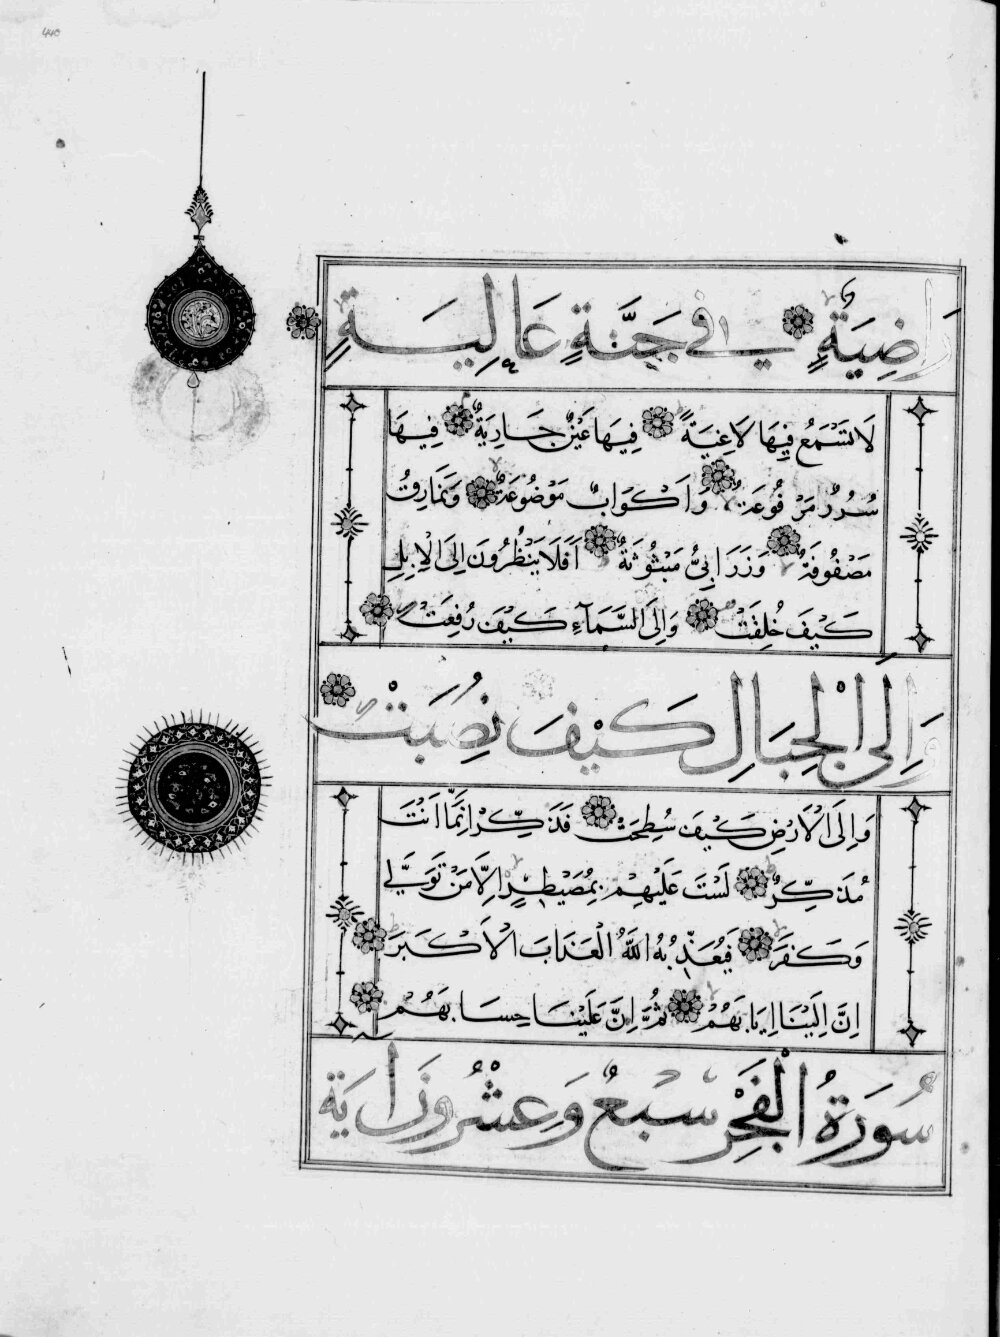 440
رَاضِيَةٌ فِي جَنَّةٍ عَالِيَةٍ
لَا تَسْمَعُ فِيهَا لَاغِيَةً فِيهَا عَيْنٌ جَارِيَةٌ فِيهَا
سُرُرٌ مَرْفُوعَةٌ وَاَكْوَابٌ مَوْضُوعَةٌ وَنَمَارِقُ
مَصْفُوفَةٌ وَزَرَابِيُّ مَبْثُوثَةٌ اَفَلَا يَنْظُرُونَ اِلَى الْاِبِلِ
كَيْفَ خُلِقَتْ وَاِلَى السَّمَآءِ كَيْفَ رُفِعَتْ
وَاِلَى الْجِبَالِ كَيْفَ نُصِبَتْ
وَاِلَى الْاَرْضِ كَيْفَ سُطِحَتْ فَذَكِّرْ اِنَّمَا اَنْتَ
مُذَكِّرٌ لَسْتَ عَلَيْهِمْ بِمُصَيْطِرٍ اِلَّا مَنْ تَوَلَّى
وَكَفَرَ فَيُعَذِّبُهُ اللَّهُ الْعَذَابَ الْاَكْبَرَ
اِنَّ اِلَيْنَا اِيَابَهُمْ ثُمَّ اِنَّ عَلَيْنَا حِسَابَهُمْ
سُورَةُ الْفَجْرِ سَبْعٌ وَعِشْرُونَ اٰيَة